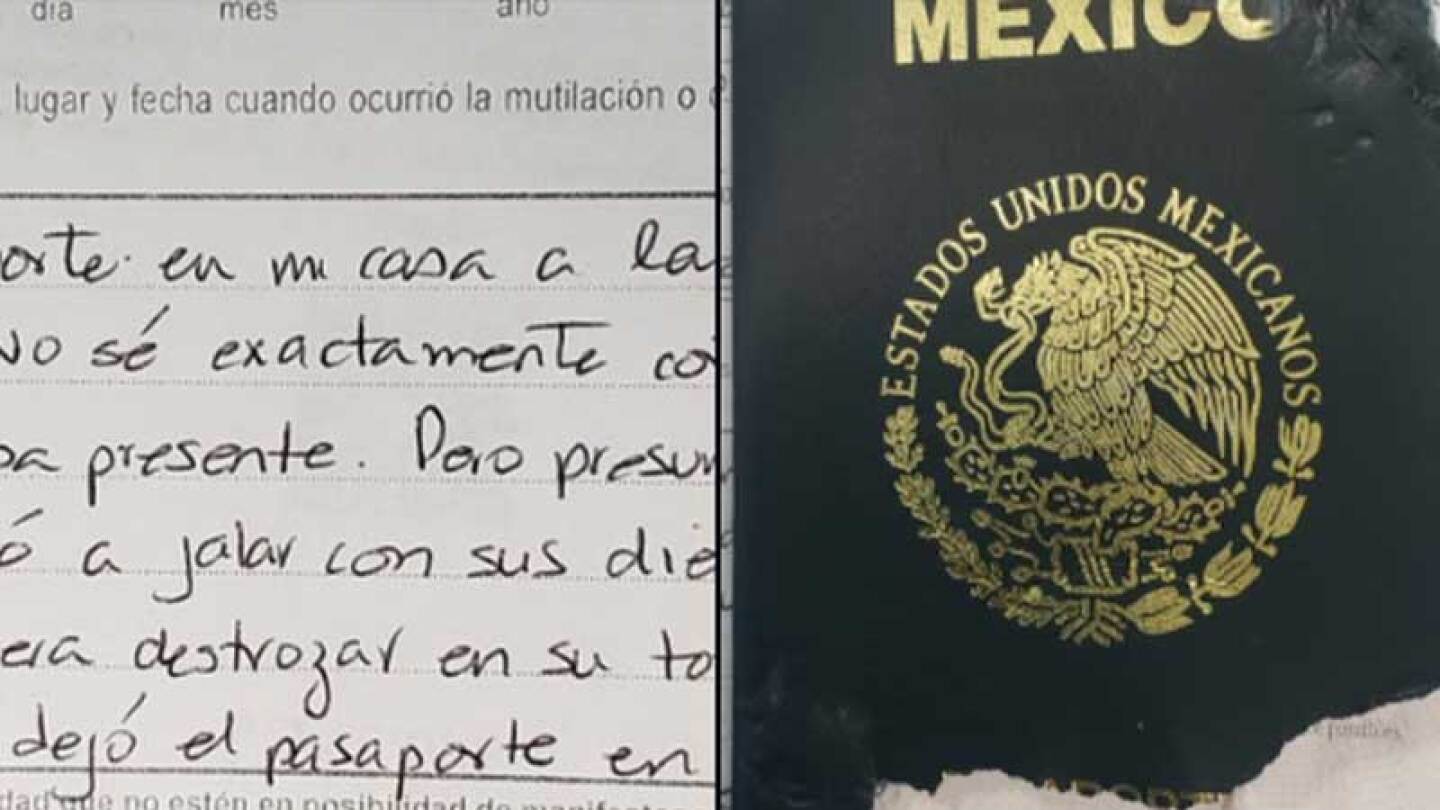 día mes año
lugar y fecha cuando ocurrió la mutilación o
orte. en mi casa a la
No sé exactamente co
presente. Pero presum
ó a jalar con sus die
era destrozar en su to
dejó el pasaporte en
dad que no estén en posibilidad de
MÉXICO
ESTADOS UNIDOS MEXICANOS